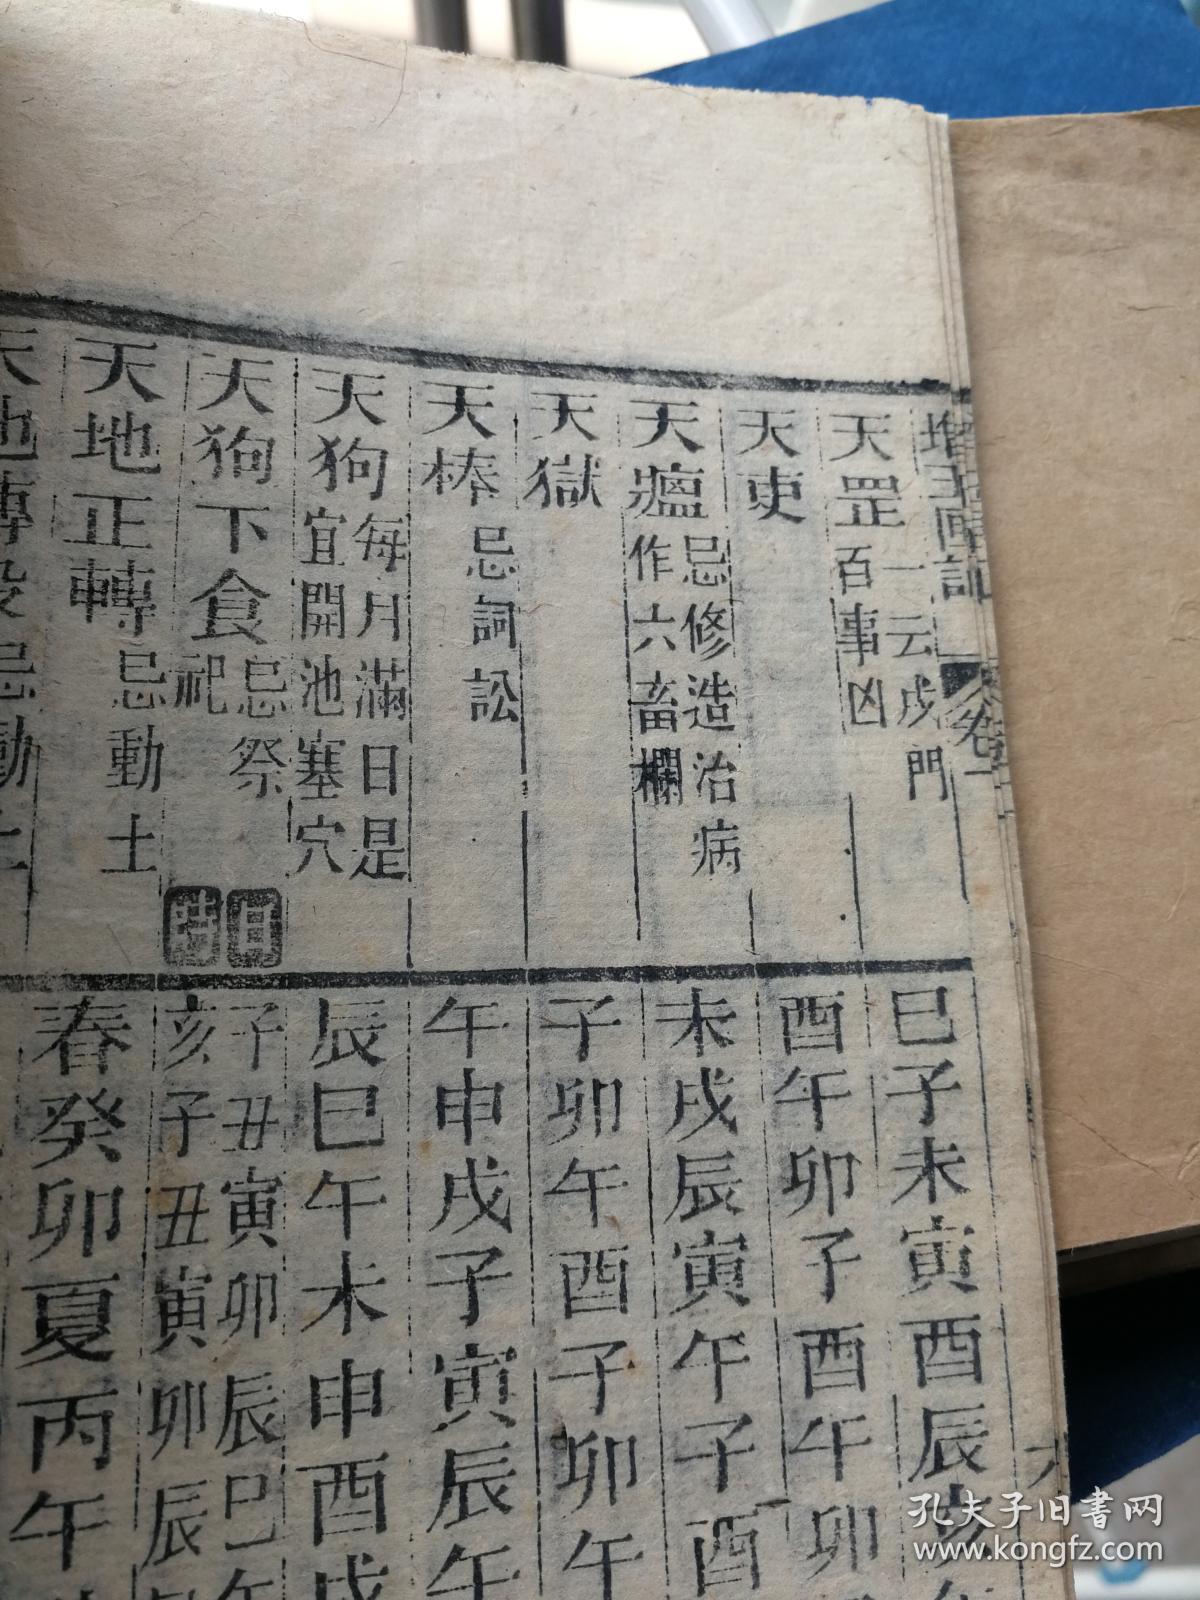 增玉匣記
卷一
六
天罡一云戌門
百事凶
巳子未寅酉辰亥午
天吏
酉午卯子酉午卯
天瘟忌修造治病
作六畜欄
未戌辰寅午子酉
天獄
子卯午酉子卯午
天棒忌詞訟
午申戌子寅辰午
天狗每月滿日是
宜開池塞穴
辰巳午未申酉戌
天狗下食忌祭
祀
日時
子丑寅卯辰巳午
亥子丑寅卯辰
天地正轉忌動土
春癸卯夏丙午
天地轉殺忌動土
孔夫子旧書网
www.kongfz.com